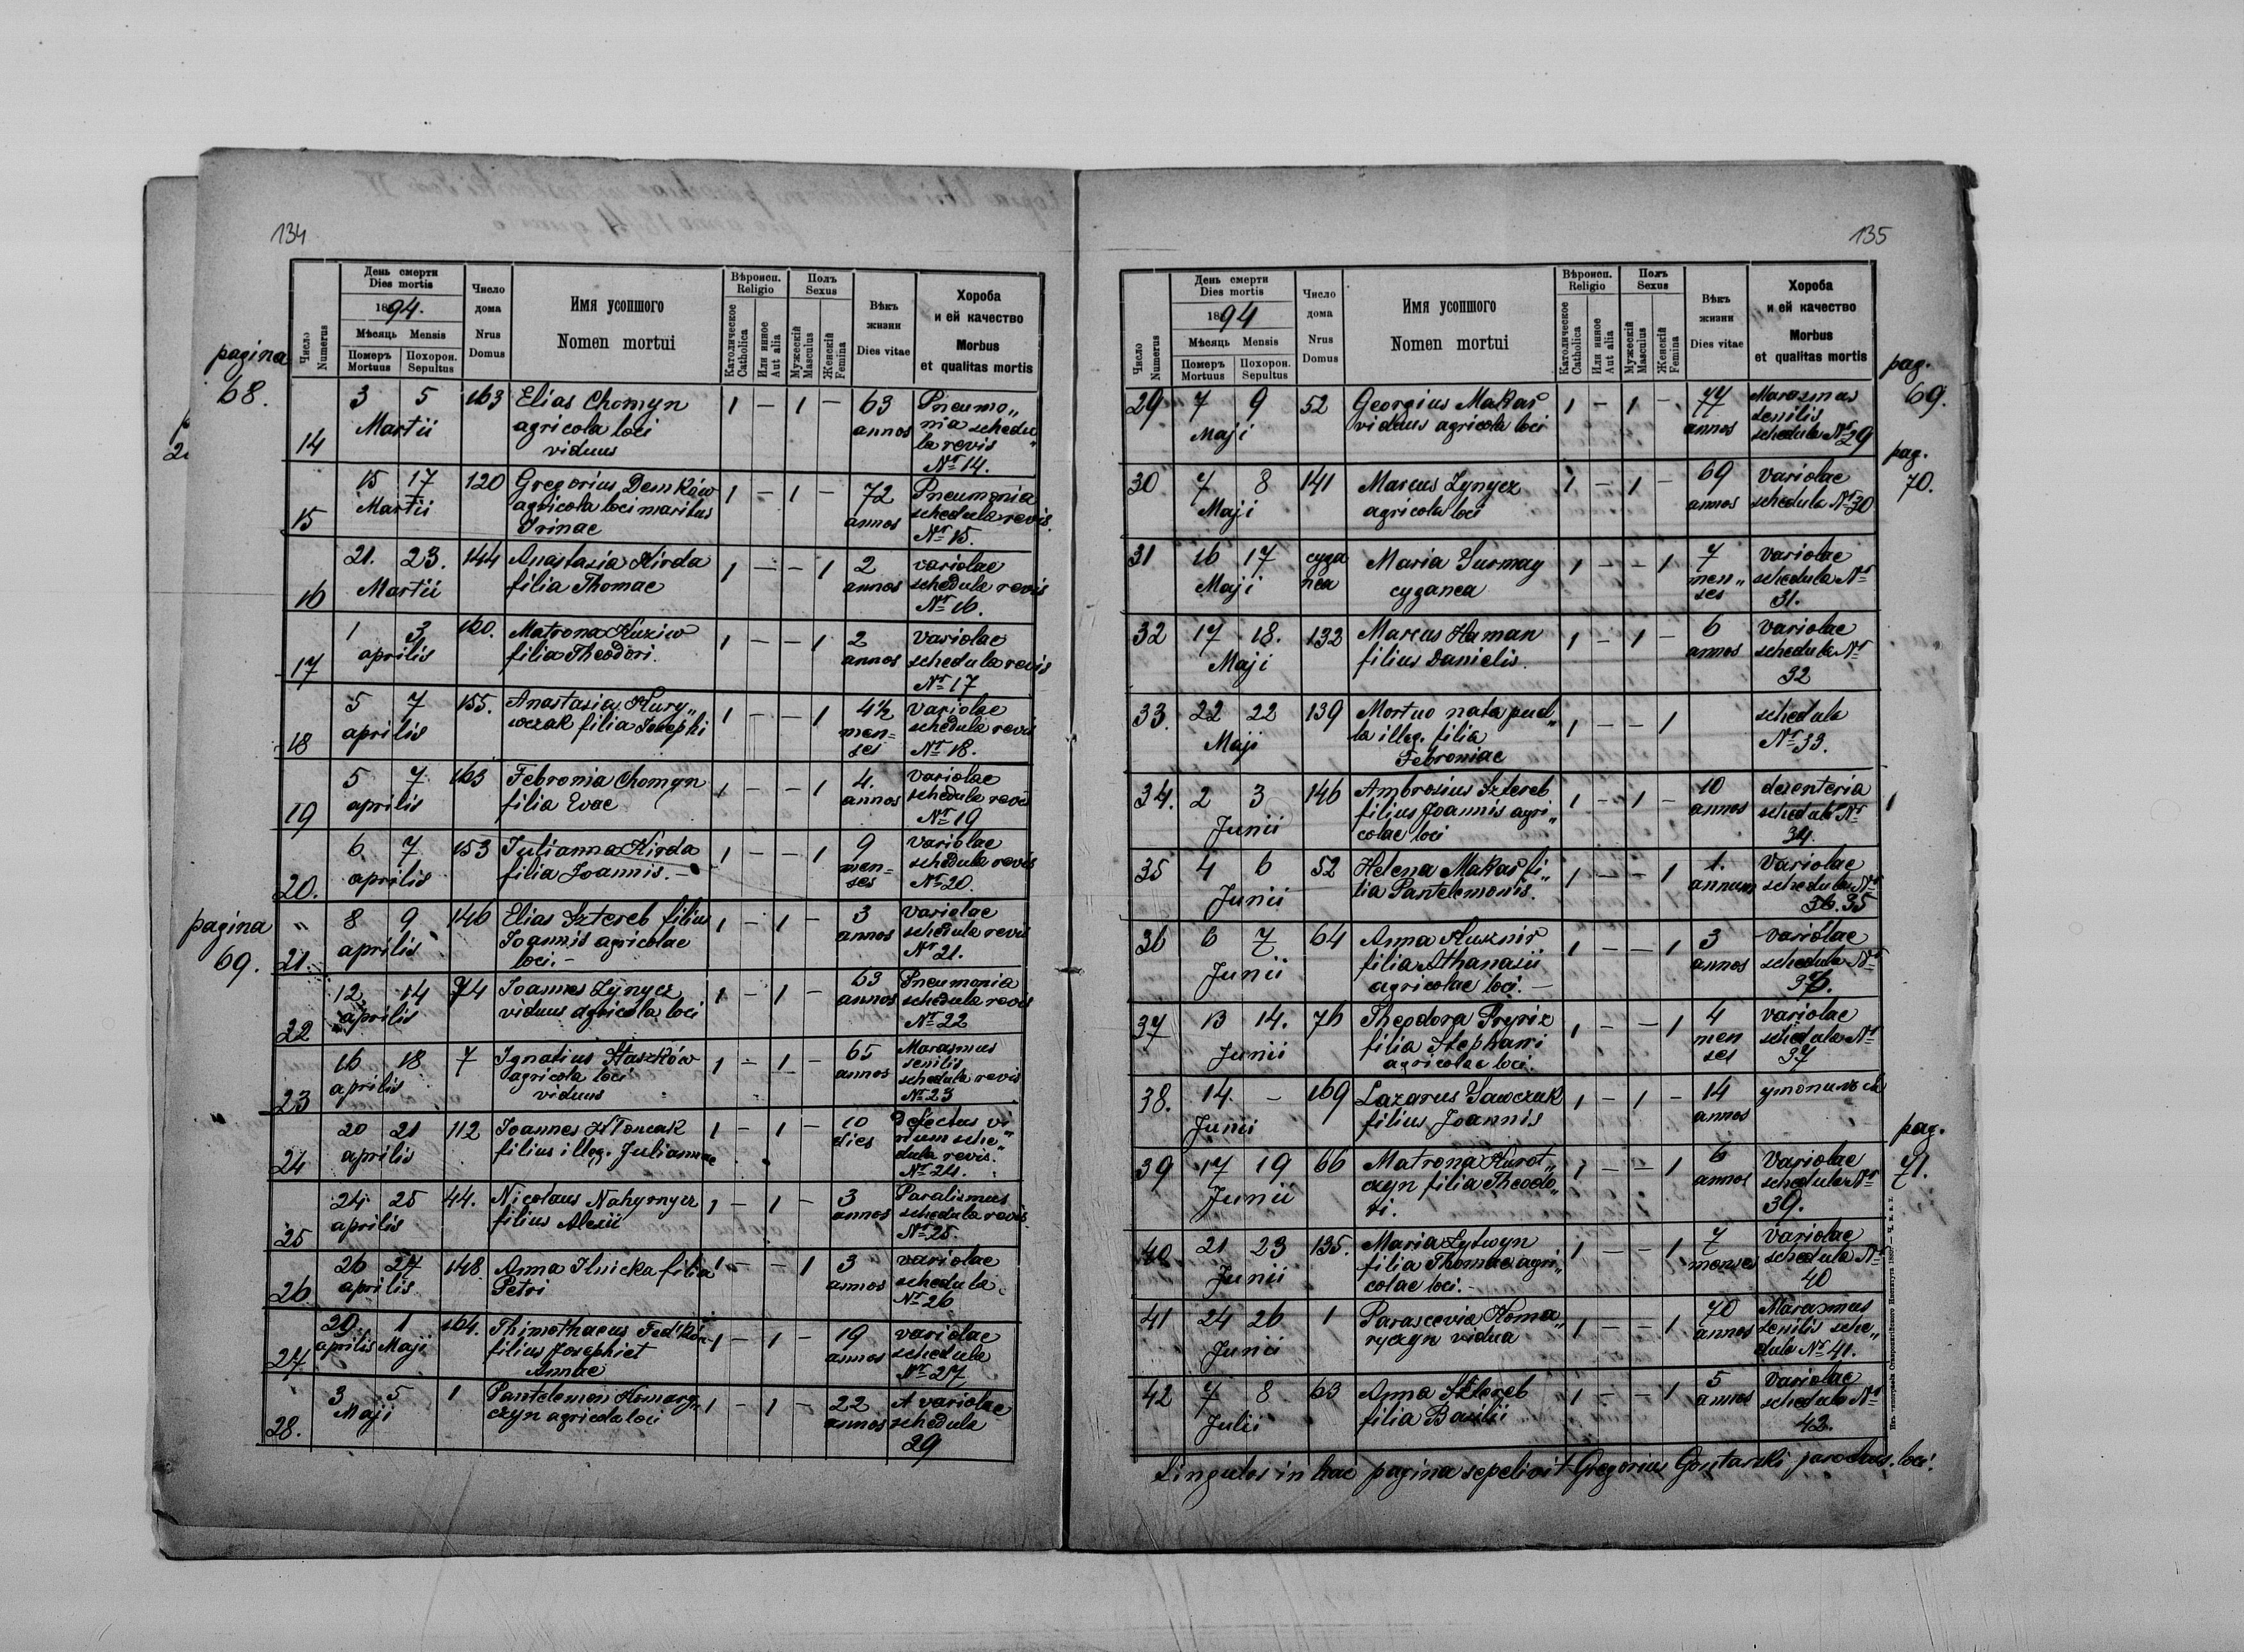 134
pagina
68.
Число Numerus
День смерти
Dies mortis
1894.
Мѣсяць Mensis
Померъ Mortuus
Похорон. Sepultus
Число дома
Nrus Domus
Имя усопшого
Nomen mortui
Вѣроисп.
Religio
Католическое Catholica
Или инное Aut alia
Полъ
Sexus
Мужескій Masculus
Женскій Femina
Вѣкъ жизни
Dies vitae
Хороба
и ей качество
Morbus
et qualitas mortis
14 3 5 163 Elias Chomyn 1 – 1 – 63 Pneumo„
Martii agricola loci annos nia schedu„
viduus la revis
Nr 14.
15 15 17 120 Gregorius Demków 1 – 1 – 72 Pneumonia
Martii agricola loci maritus annos schedula revis.
Irinae Nr 15.
16 21. 23. 144 Anastasia Kirda 1 – – 1 2 variolae
Martii filia Thomae annos schedula revis
Nr 16.
17 1 3 160. Matrona Kuziw 1 – – 1 2 variolae
aprilis filia Theodori. annos schedula revis
Nr 17
18 5 7 155. Anastasia Kury„ 1 – – 1 4½ variolae
aprilis wczak filia Josephi men= schedula revis
ses Nr 18.
19 5 7 163 Febronia Chomyn 1 – – 1 4. variolae
aprilis filia Evae annos schedula revis
Nr 19
20. 6 7 153 Julianna Kirda 1 – – 1 9 variolae
aprilis filia Joannis. – men= schedula revis
ses Nr 20.
pagina
69.
21. 8 9 146 Elias Sztereb filius 1 – 1 – 3 variolae
aprilis Joannis agricolae annos schedula revis
loci. – Nr 21.
22 12 14 74 Joannes Lynycz 1 – 1 – 63 Pneumonia
aprilis viduus agricola loci annos schedula revis
Nr 22
23 16 18 7 Ignatius Staszków 1 – 1 – 65 Marasmus
aprilis agricola loci annos senilis
viduus schedula revis
Nr 23
24 20 21 112 Joannes 1 – 1 – 10 Defectus vi„
aprilis filius illeg. Juliannae dies rium sche„
dula revis.
Nr 24.
25 24 25 44. Nicolaus Nahyrnycz 1 – 1 – 3 Paralismus
aprilis filius Alexii annos schedula revis.
Nr 25.
26 26 27 148 Anna Ilnicka filia 1 – – 1 3 variolae
aprilis Petri annos schedula
Nr 26
27 29 1 164. Thimothaeus 1 – 1 – 19 variolae
aprilis Maji filius Josephi et annos schedula
Annae Nr 27
28. 3 5 1 Pantelemon Komary„ 1 – 1 – 22 A variolae
Maji czyn agricola loci annos schedula
29
135
Число Numerus
День смерти
Dies mortis
1894
Мѣсяць Mensis
Померъ Mortuus
Похорон. Sepultus
Число дома
Nrus Domus
Имя усопшого
Nomen mortui
Вѣроисп.
Religio
Католическое Catholica
Или инное Aut alia
Полъ
Sexus
Мужескій Masculus
Женскій Femina
Вѣкъ жизни
Dies vitae
Хороба
и ей качество
Morbus
et qualitas mortis
pag.
69.
29 7 9 52 Georgius Makar 1 – 1 – 77 Marasmus
Maji viduus agricola loci annos senilis
schedula Nr 29
pag.
70.
30 7 8 141 Marcus Lynycz 1 – 1 – 69 variolae
Maji agricola loci annos schedula Nr 30
31 16 17 cyga Maria Surmay 1 – – 1 7 variolae
Maji nea cyganea men„ schedula Nr
ses 31.
32 17 18. 132 Marcus Haman 1 – 1 – 6 variolae
Maji filius Danielis. annos schedula Nr
32
33. 22 22 139 Mortuo nata puel„ 1 – – 1 schedula
Maji la illeg. filia Nr 33.
Febroniae
34. 2 3 146 Ambrosius Sztereb 1 – 1 – 10 desenteria
Junii filius Joannis agri„ annos schedula Nr
colae loci 34.
35 4 6 52 Helena Makar fi„ 1 – – 1 1. variolae
Junii lia Pantelemonis. annum schedula Nr
36. 35
36 6 7 64 Anna Kusznir 1 – – 1 3 variolae
Junii filia Athanasii annos schedula Nr
agricolae loci. – 36.
37 13 14. 76 Theodora Pryriz 1 – – 1 4 variolae
Junii filia Stephani men schedula Nr
agricolae loci. ses 37
38. 14. – 169 Lazarus Sawczuk 1 – 1 – 14
Junii filius Joannis annos
pag.
71.
39 17 19 66 Matrona Kurot„ 1 – – 1 6 variolae
Junii czyn filia Theodo„ annos schedula Nr
ri. 39.
40 21 23 135. Maria Lytwyn 1 – – 1 7 variolae
Junii filia Thomae agri„ menses schedula Nr
colae loci. – 40
41 24 26 1 Parascevia Koma„ 1 – – 1 70 Marasmus
Junii ryczyn vidua annos senilis sche„
dula Nr 41.
42 7 8 63 Anna Sztereb 1 – – 1 5 variolae
Julii filia Basilii annos schedula Nr
42.
Singulos in hac pagina sepelivit Gregorius parochus loci.